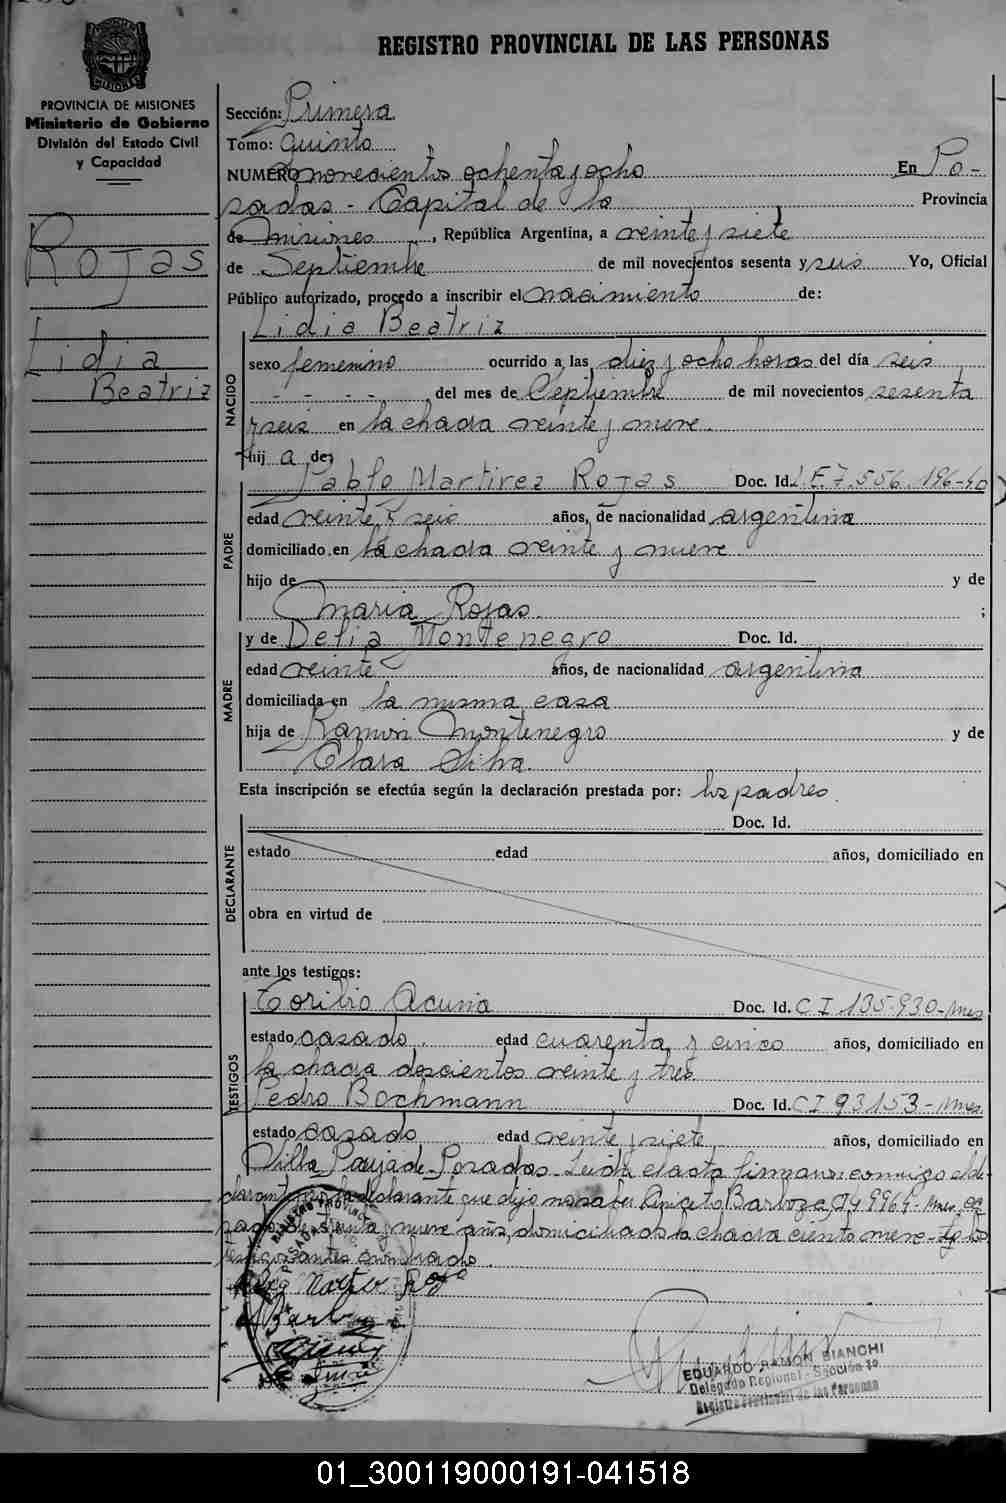 REGISTRO PROVINCIAL DE LAS PERSONAS
PROVINCIA DE MISIONES
Ministerio de Gobierno
División del Estado Civil
y Capacidad
Rojas
Lidia
Beatriz
Sección: Primera
Tomo: Quinto
NUMERO novecientos ochenta y ocho En Po-
sadas - Capital de la Provincia
de Misiones, República Argentina, a veinte y siete
de Septiembre de mil novecientos sesenta y seis Yo, Oficial
Público autorizado, procedo a inscribir el nacimiento de:
Lidia Beatriz
NACIDO
sexo femenino ocurrido a las diez y ocho horas del día seis
- - - - del mes de Septiembre de mil novecientos sesenta
y seis en la chacra veinte y nueve.
hij a de
PADRE
Pablo Martirez Rojas Doc. Id. L.E.7.556.196-40
edad veinte y seis años, de nacionalidad argentina
domiciliado en la chacra veinte y nueve
hijo de y de
Maria Rojas. ;
MADRE
y de Delia Montenegro Doc. Id.
edad veinte años, de nacionalidad argentina
domiciliada en la misma casa
hija de Ramon Montenegro y de
Clara Silva.
Esta inscripción se efectúa según la declaración prestada por: los padres.
DECLARANTE
Doc. Id.
estado edad años, domiciliado en
obra en virtud de
ante los testigos:
TESTIGOS
Toribio Acuña Doc. Id. C I 135.930-Mnes
estado casado. edad cuarenta y cinco años, domiciliado en
la chacra doscientos veinte y tres
Pedro Bochmann Doc. Id. C I 93153-Mnes.
estado casado edad veinte y siete años, domiciliado en
Villa Posadas. Leida el acta firman conmigo el de
clarante la declarante que dijo no saber Aniceto Barboza
de treinta y nueve años, domiciliado la chacra ciento nueve - y los
testigos antes nombrado.
EDUARDO RAMON BIANCHI
Delegado Regional - Sección 1a.
Registro Provincial de las Personas
01_300119000191-041518